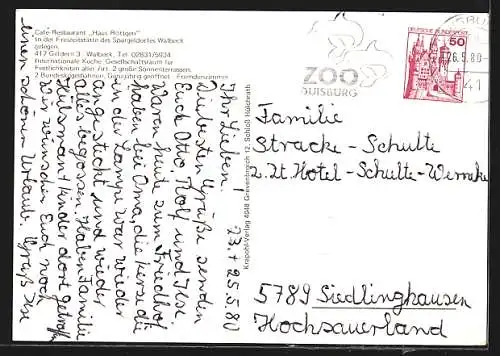 Café-Restaurant „Haus Röttgen"
In der Freizeitstätte des Spargeldorfes Walbeck
gelegen.
417 Geldern 3, Walbeck, Tel. 02831/5934
Internationale Küche, Gesellschaftsraum für
Festlichkeiten aller Art. 2 große Sonnenterrassen.
2 Bundeskegelbahnen. Ganzjährig geöffnet. Fremdenzimmer
Krapohl-Verlag 4048 Grevenbroich 12, Schloß Hülchrath
ZOO
DUISBURG
26.5.80
41
DEUTSCHE BUNDESPOST
50
23. + 25.5.80
Ihr Lieben!
Die besten Grüße senden
Euch Otto, Rolf und Ilse.
Waren heute zum Friedhof,
haben bei Oma, die Kerze die
in der Lampe war wieder
angesteckt und wieder
alles begossen. Haben Familie
Hülsmann Kinder dort getroffen
Wir wünschen Euch noch
einen schönen Urlaub. Gruß Ilse
Familie
Stracke-Schulte
z. Zt. Hotel-Schulte-Werneke
5789 Siedlinghausen
Hochsauerland